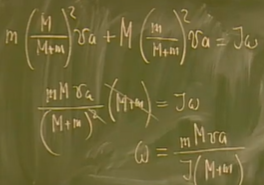 m (M/(M+m))² va + M (m/(M+m))² va = Jω
mMva/(M+m)² (M+m) = Jω
ω = mMva/(J(M+m))